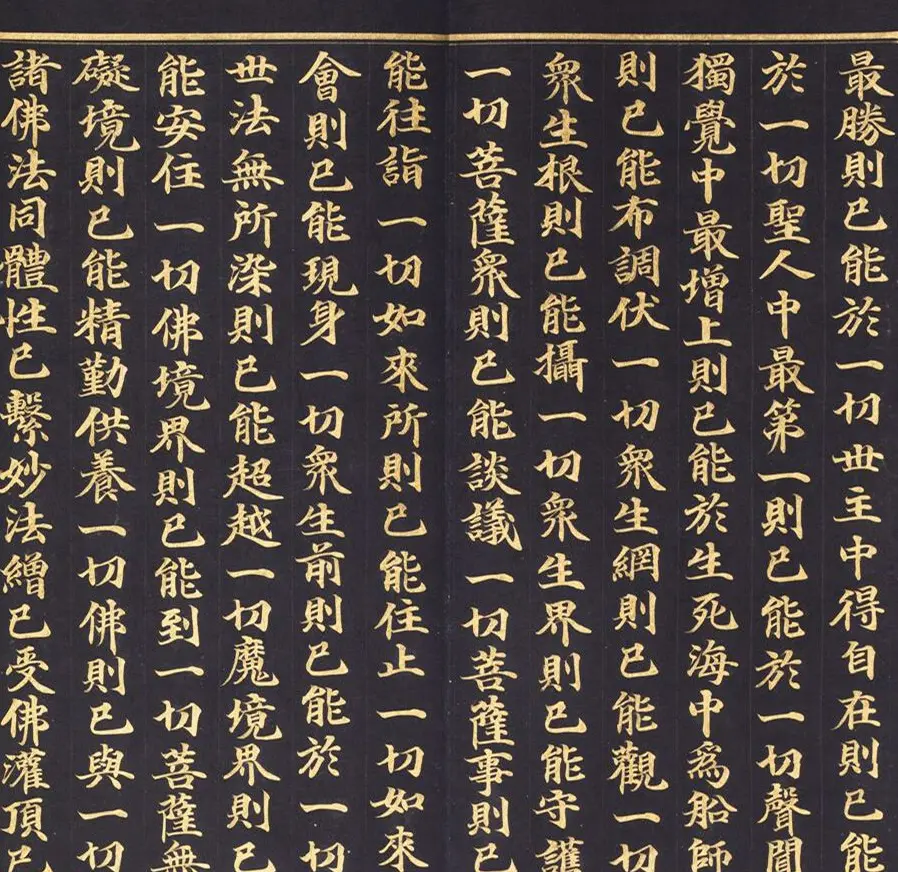 最勝則已能於一切世主中得自在則已能
於一切聖人中最第一則已能於一切聲聞
獨覺中最增上則已能於生死海中為船師
則已能布調伏一切眾生網則已能觀一切
眾生根則已能攝一切眾生界則已能守護
一切菩薩眾則已能談議一切菩薩事則已
能往詣一切如來所則已能住止一切如來
會則已能現身一切眾生前則已能於一切
世法無所染則已能超越一切魔境界則已
能安住一切佛境界則已能到一切菩薩無
礙境則已能精勤供養一切佛則已與一切
諸佛法同體性已繫妙法繒已受佛灌頂已